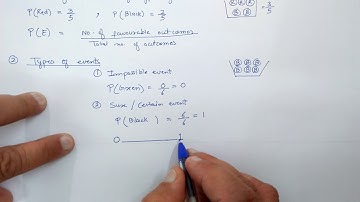 P(Red) = 3/5 , P(Black) = 2/5
= 3/5
P(E) = No. of favourable outcomes / Total no. of outcomes
② Types of events
① Impossible event
P(Green) = 0/6 = 0
② Sure / Certain event
P(Black) = 6/6 = 1
0 1